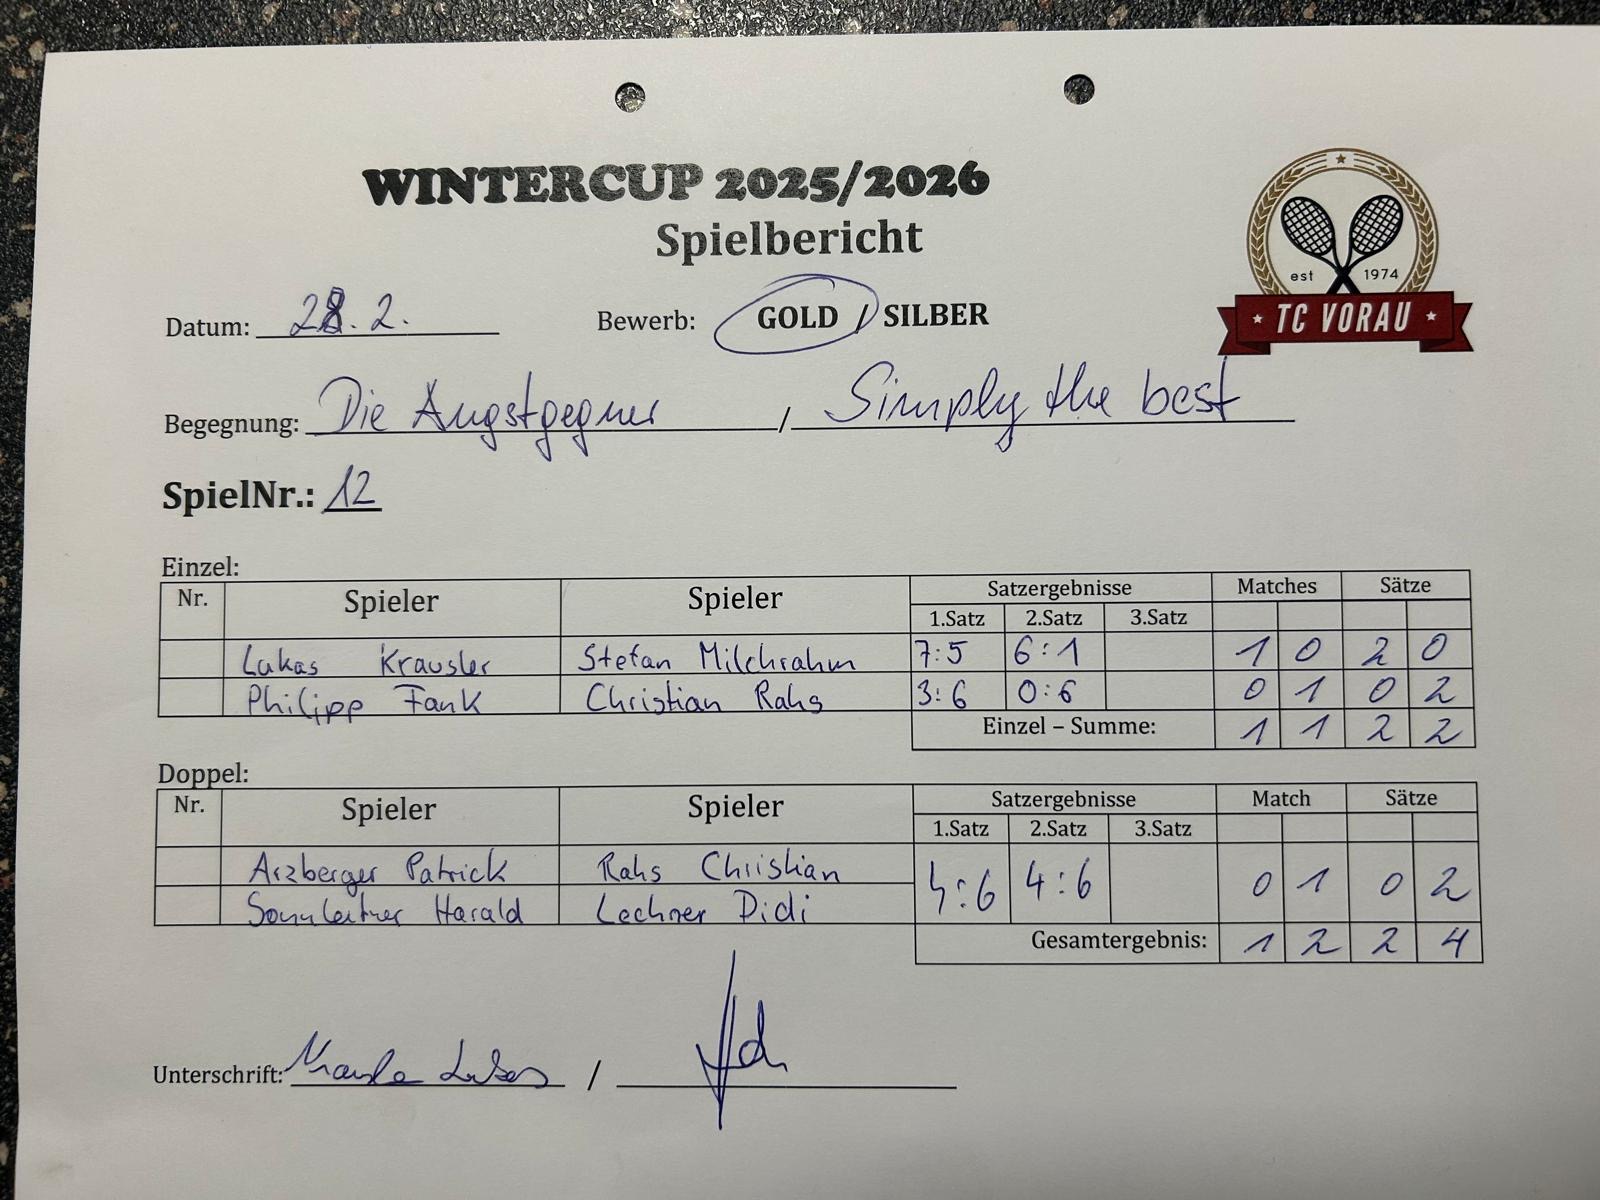 WINTERCUP 2025/2026
Spielbericht
est 1974
TC VORAU
Datum: 28.2. Bewerb: GOLD / SILBER
Begegnung: Die Angstgegner / Simply the best
SpielNr.: 12
Einzel:
Nr. Spieler Spieler Satzergebnisse Matches Sätze
1.Satz 2.Satz 3.Satz
Lukas Krausler Stefan Milchrahm 7:5 6:1 1 0 2 0
Philipp Fank Christian Rahs 3:6 0:6 0 1 0 2
Einzel – Summe: 1 1 2 2
Doppel:
Nr. Spieler Spieler Satzergebnisse Match Sätze
1.Satz 2.Satz 3.Satz
Arzberger Patrick Rahs Christian :6 4:6 0 1 0 2
Sonnleitner Harald Lechner Didi
Gesamtergebnis: 1 2 2 4
Unterschrift: Lukas /